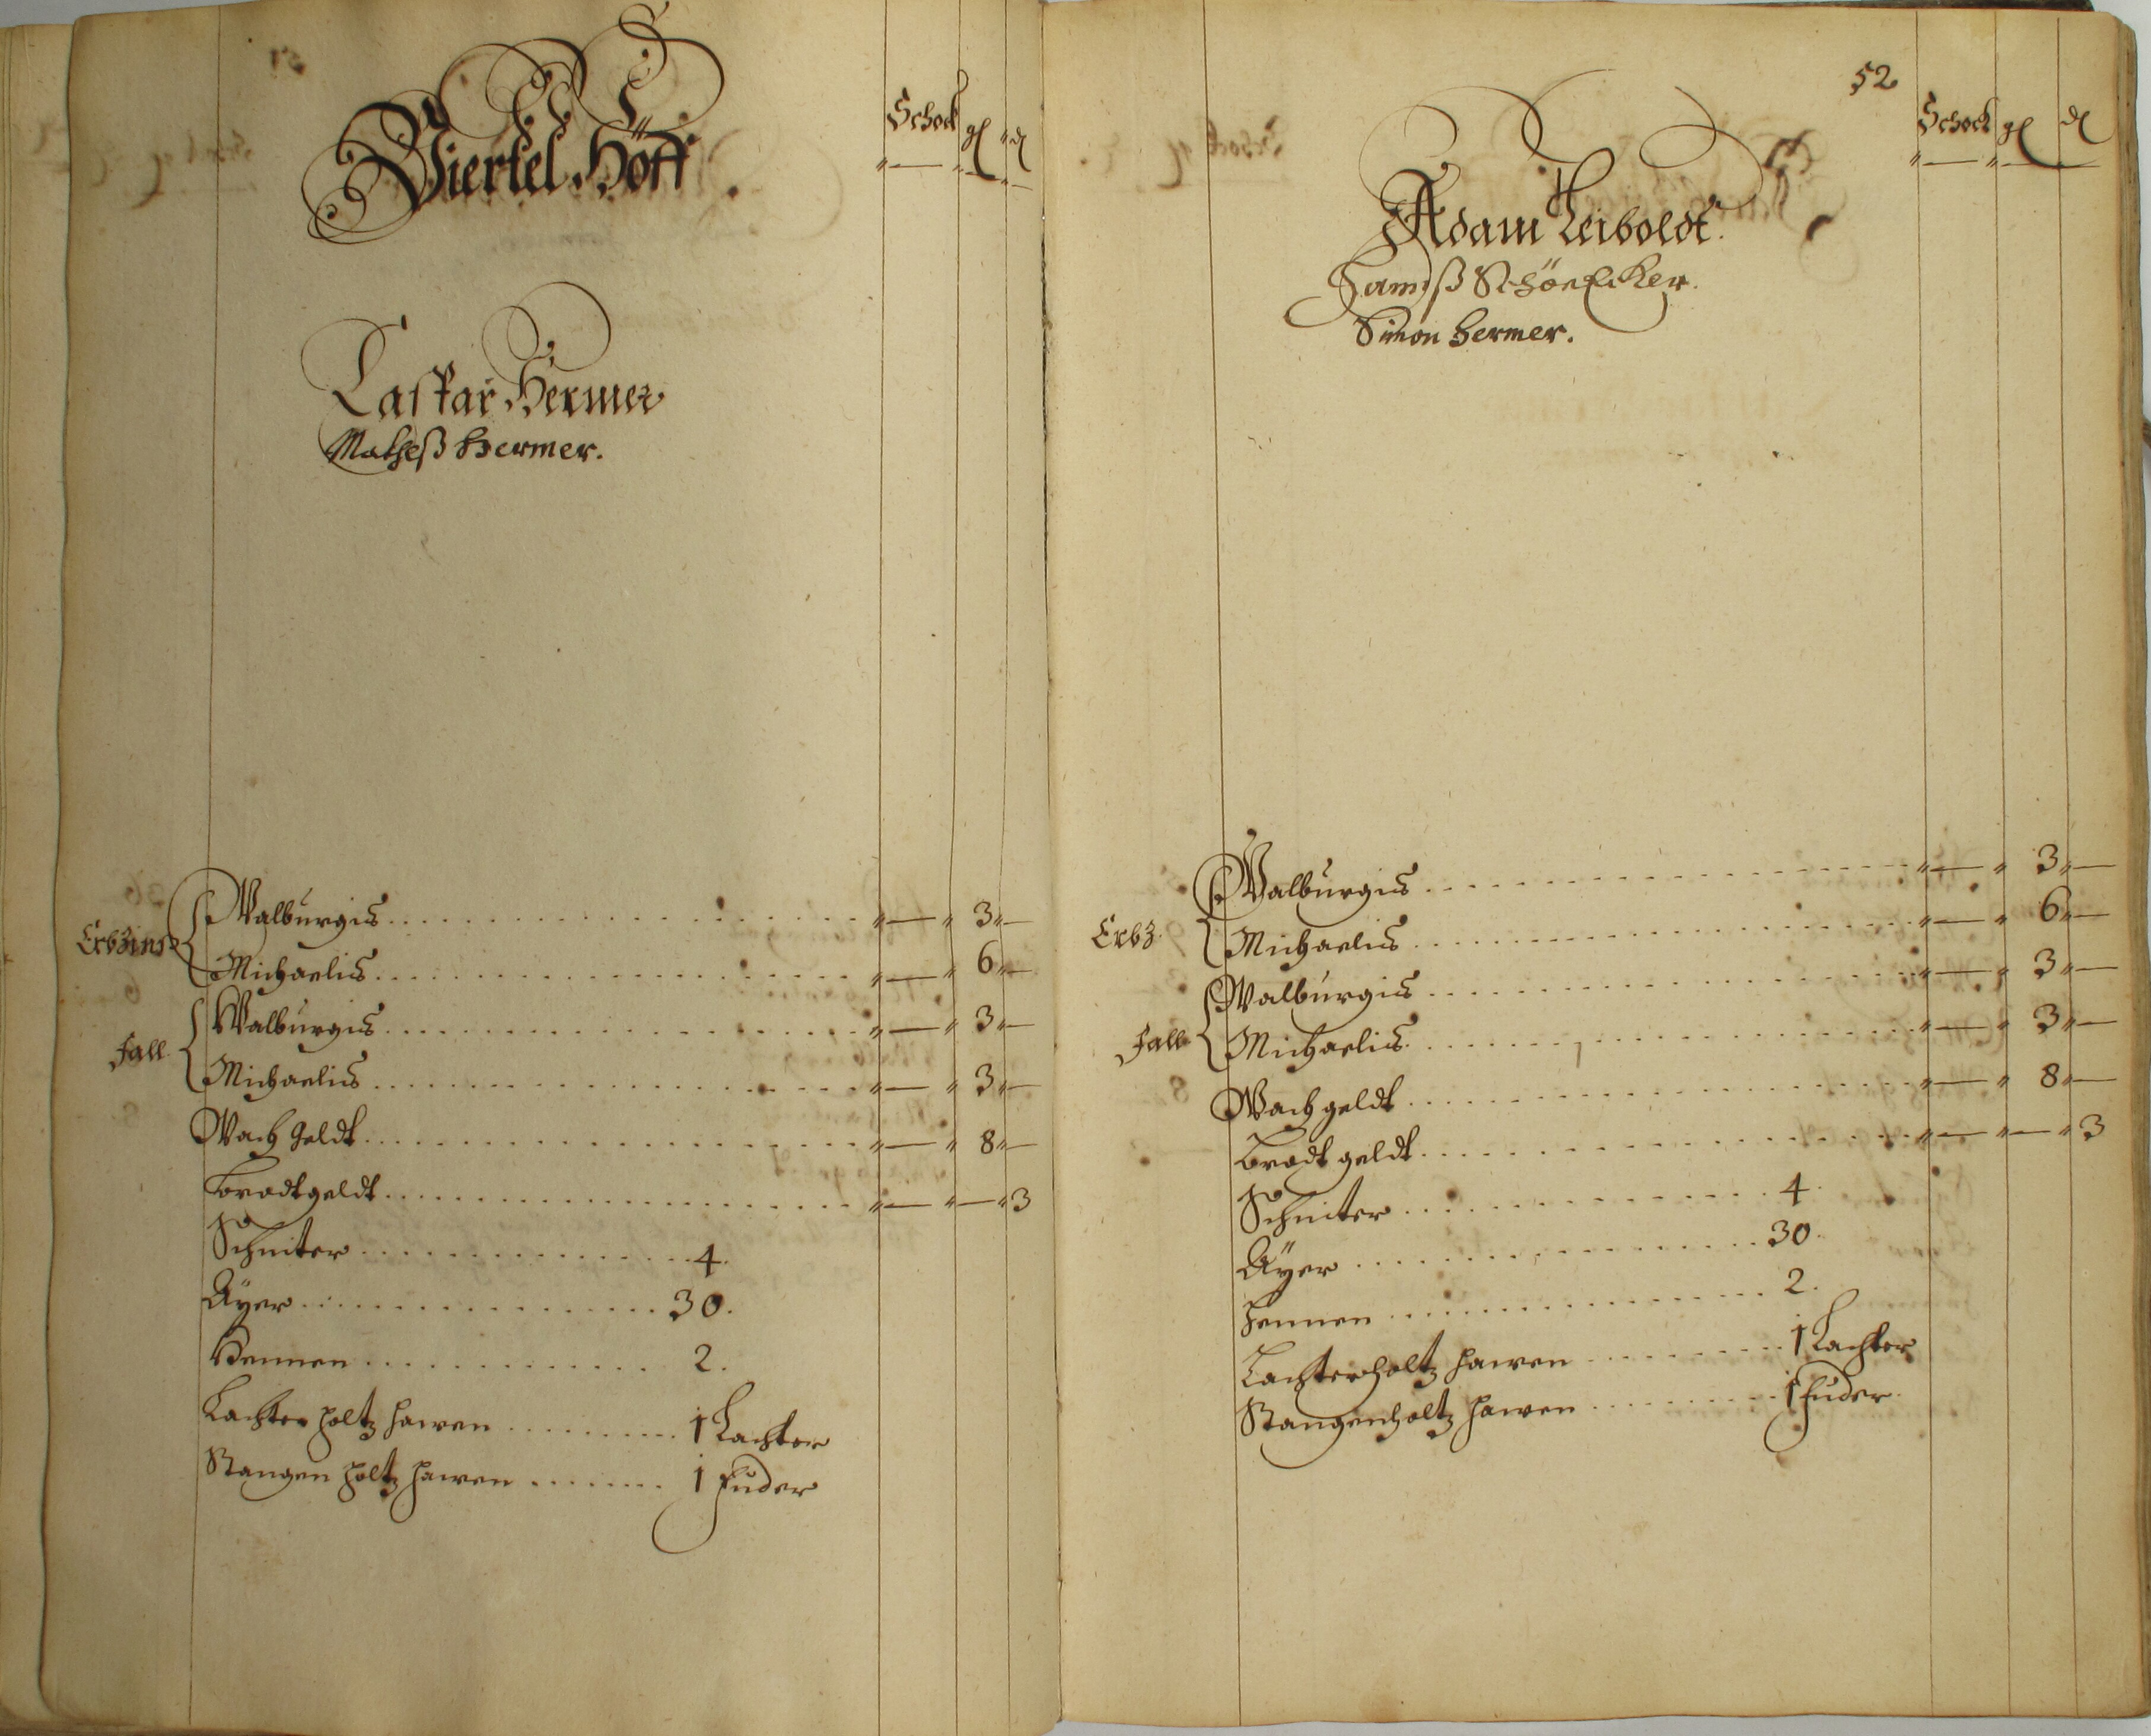 Viertel Höff.
Schock gl dl
Caspar Hermer
Matheß Hermer.
Erbzinß
Walburgis . . . „— „ 3 „—
Michaelis . . . „— „ 6 „—
Fall
Walburgis . . . „— „ 3 „—
Michaelis . . . „— „ 3 „—
Wach Geldt . . . „— „ 8 „—
Brodtgeldt . . . „— „— „ 3
Schniter . . . 4.
Äÿer . . . 30.
Hennen . . . 2.
Lachter holtz hawen . . . 1 Lachter
Stangen holtz hawen . . . 1 Fuder
52
Schock gl dl
Adam Leiboldt.
Schönecker.
Simon Hermer.
Erbz.
Walburgis . . . „— „ 3 „—
Michaelis . . . „— „ 6 „—
Fall
Walburgis . . . „— „ 3 „—
Michaelis . . . „— „ 3 „—
Wachgeldt . . . „— „ 8 „—
Brodt geldt . . . „— „— „ 3
Schniter . . . 4.
Äÿer . . . 30.
Hennen . . . 2.
Lachterholtz hawen . . . 1 Lachter
Stangenholtz hawen . . . 1 Fuder.